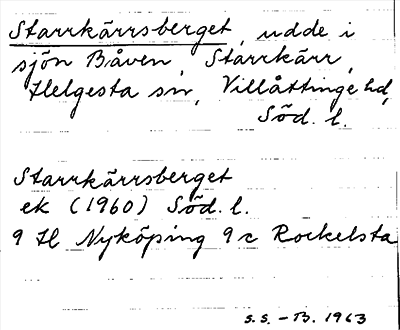 Starrkärrsberget, udde i
sjön Båven, Starrkärr,
Helgesta sn, Villåttinge hd,
Söd. l.
Starrkärrsberget
ek (1960) Söd. l.
9 H Nyköping 9 c Rockelsta
S.S. - B. 1963